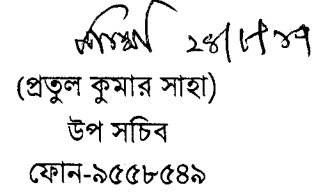 (প্রতুল কুমার সাহা)
উপ সচিব
ফোন-৯৫৫৮৫৪৯